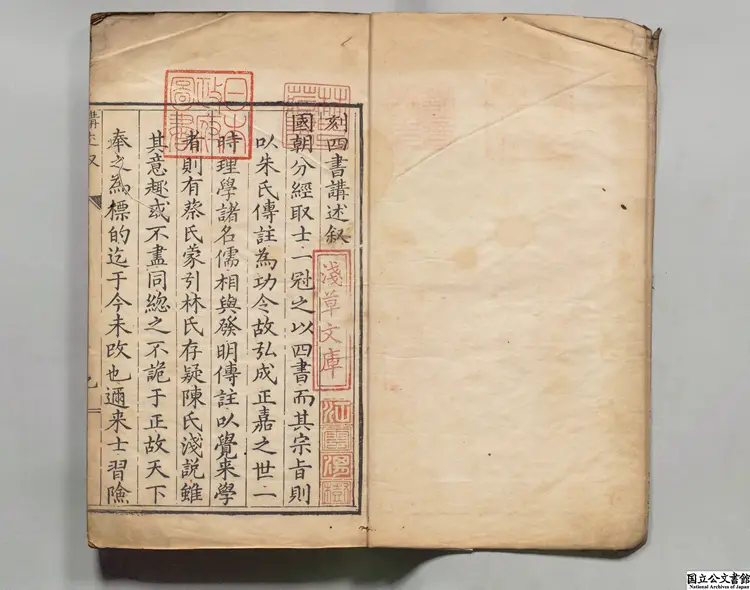 刻四書講述叙
國朝分經取士一冠之以四書而其宗旨則
以朱氏傳註為功令故弘成正嘉之世一
時理學諸名儒相與發明傳註以覺来學
者則有蔡氏蒙引林氏存疑陳氏淺說雖
其意趣或不盡同緫之不詭于正故天下
奉之為標的迄于今未改也邇来士習險
講述叙
日本政府圖書
淺草文庫
林氏藏書
江雲渭樹
国立公文書館
National Archives of Japan